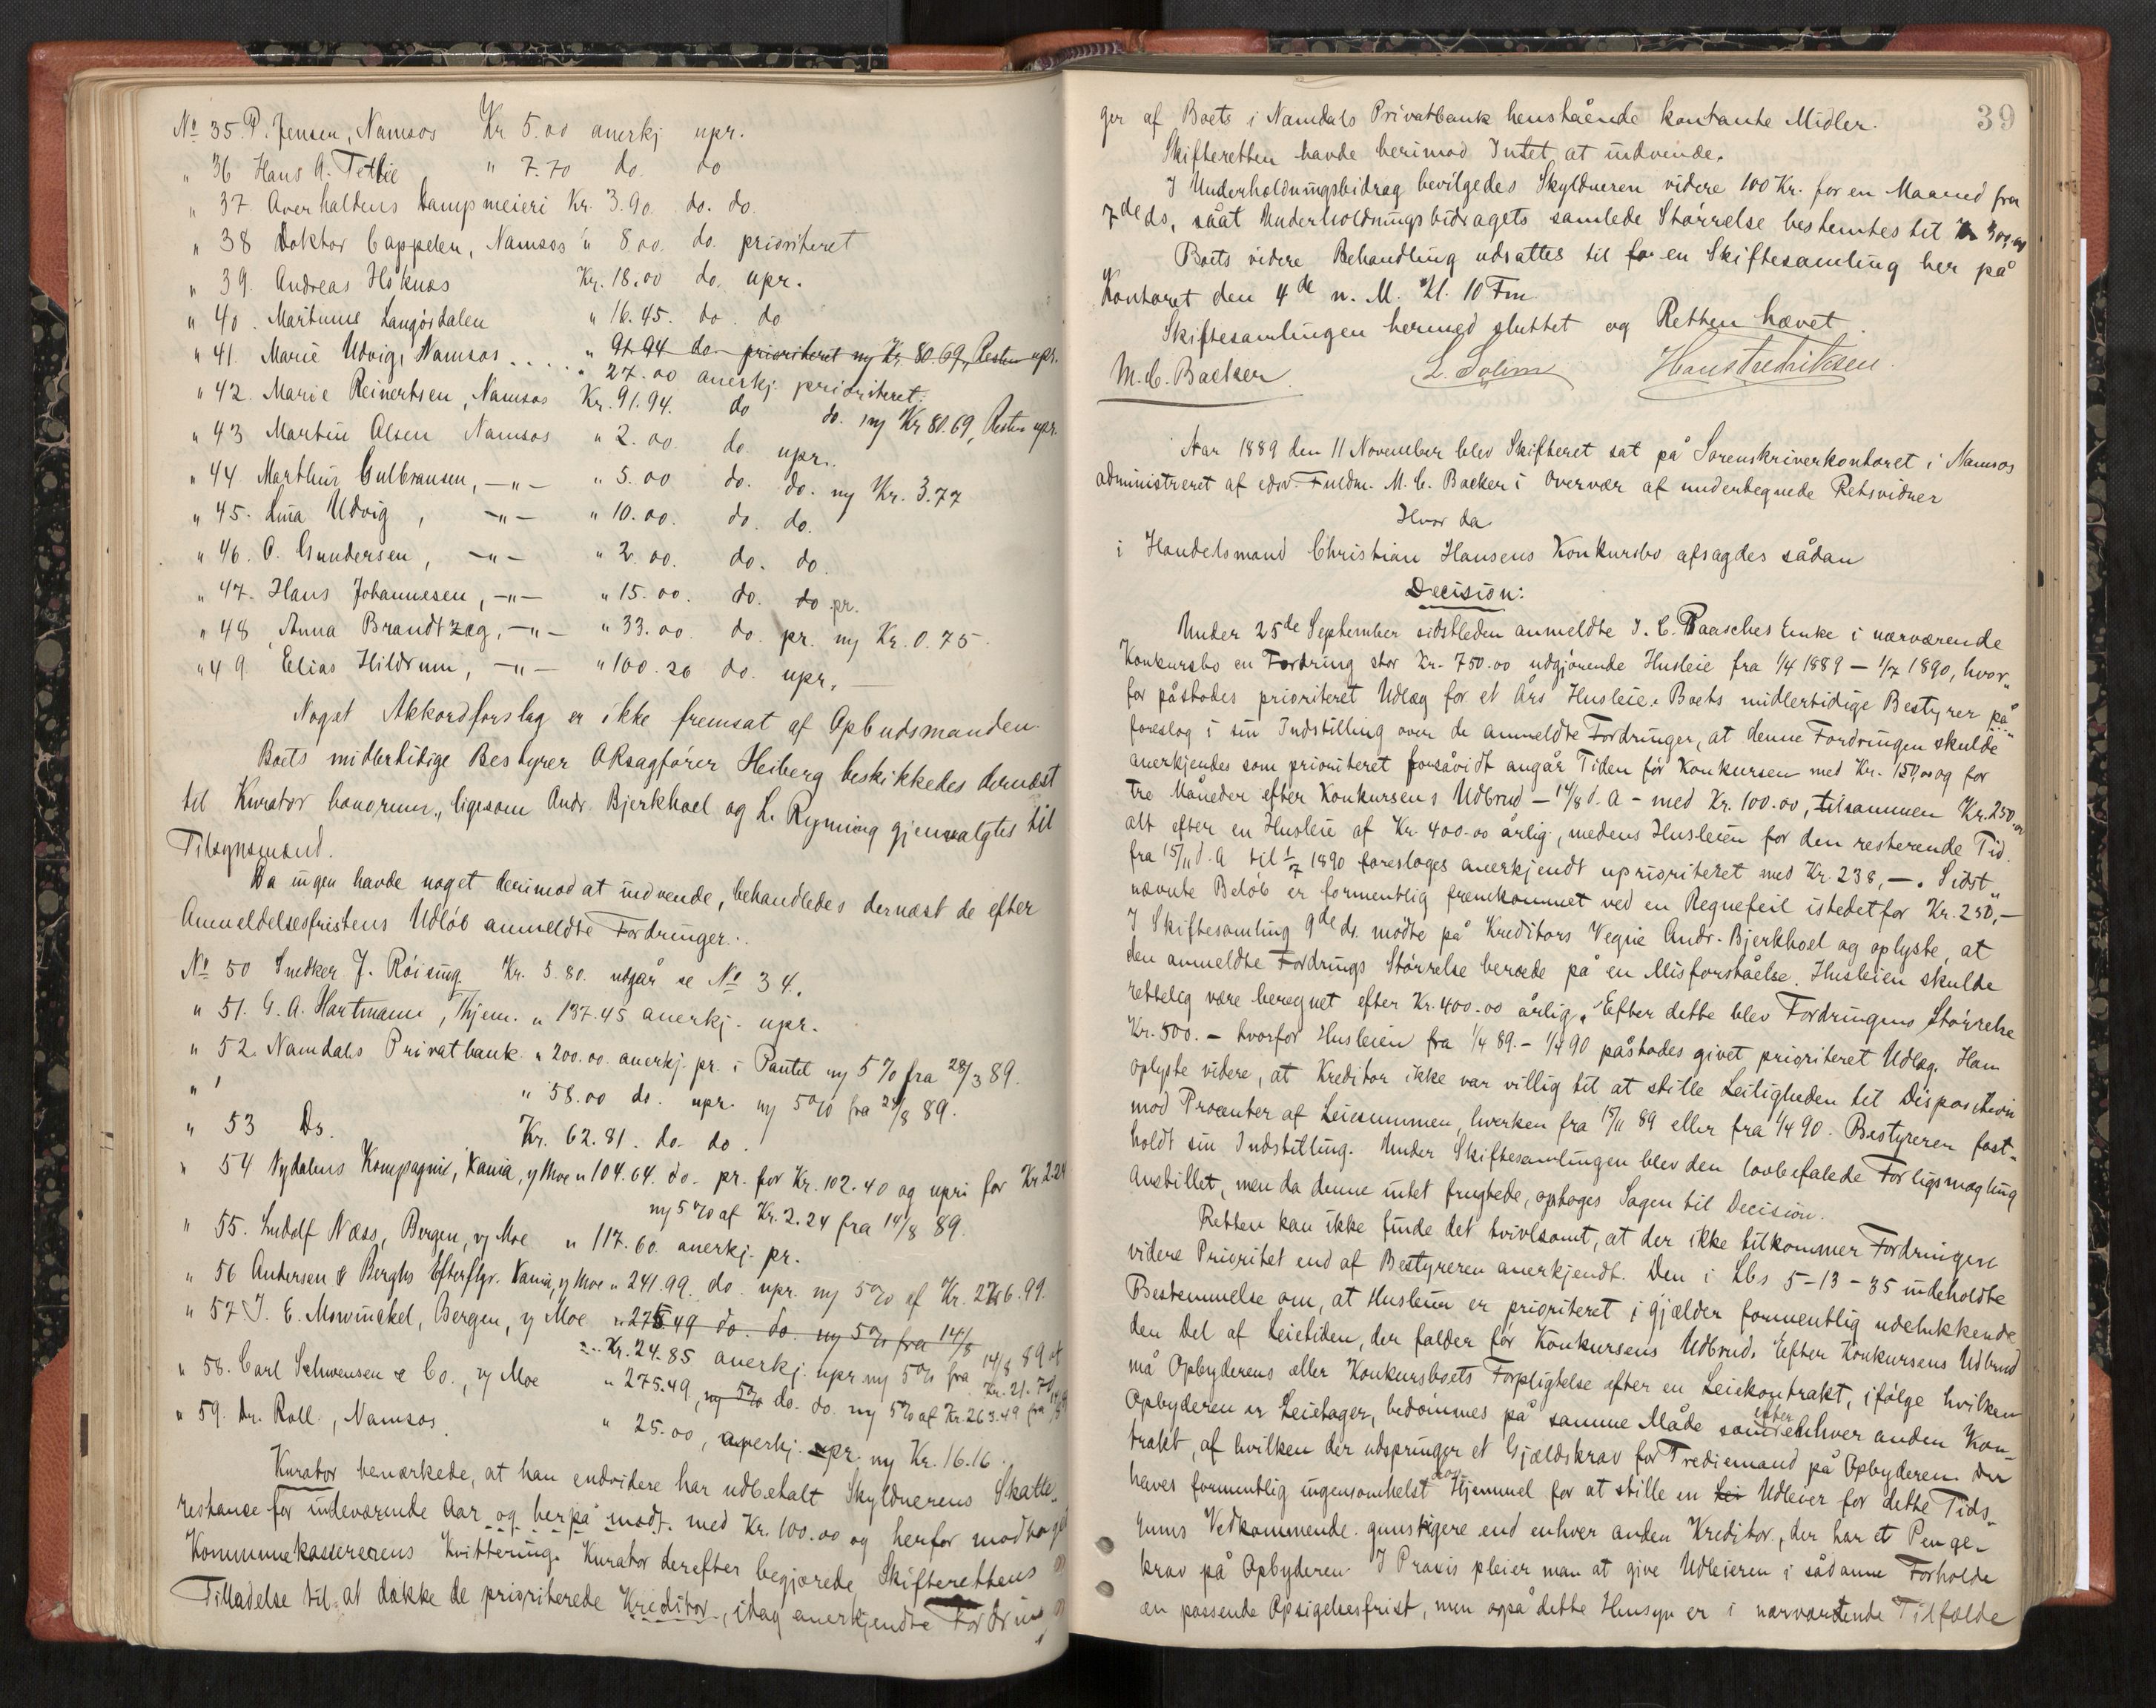 No 35 P. Jensen, Namsos Kr 5.00 anerkj upr.
" 36 Hans A. Tetlie " 7.70 do. do
" 37 Overhaldens Dampmeieri Kr. 3.90. do. do
" 38 Doktor Cappelen, Namsos " 8 00. do. prioriteret
" 39. Andreas Höknes Kr. 18.00 do. upr.
" 40. Martinus Langösdalen " 16.45. do. do
" 41. Marie Udvig, Namsos . . . . " 91.94 do prioriteret mg Kr. 80.69, Resten upr.
" 27.00 anerkj. prioriteret.
" 42. Marie Reinertsen, Namsos Kr. 91.94. do do. mg Kr 80.69, Resten upr.
" 43 Martin Olsen Namsos " 2.00. do. upr.
" 44 Marthin Gulbransen, —"— " 5.00 do. do. mg Kr. 3.77
" 45. Lina Udvig, —"— " 10.00. do. do.
" 46. O. Gundersen, —"— " 2.00. do. do.
" 47. Hans Johannesen, —"— " 15.00. do. do pr.
" 48 Anna Brandtzæg, —"— " 33.00. do. pr. mg Kr. 0.75.
" 49 Elias Hildrum, —"— " 100.20 do. upr. —
Noget Akkordforslag er ikke fremsat af Opbudsmanden.
Boets midlertidige Bestyrer ORsagfører Heiberg beskikkedes dernæst
til Kurator bonorum, ligesom Andr. Bjerkhoel og L. Ryming gjenvalgtes til
Tilsynsmænd.
Da ingen havde noget derimod at indvende, behandledes dernæst de efter
Anmeldelsesfristens Udløb anmeldte Fordringer:.
No 50 Snedker J. Röising. Kr. 5.80. udgår se No 34.
" 51. G. A. Hartmann, Thjem. " 137.45 anerkj. upr.
" 52. Namdals Privatbank " 200.00. anerkj. pr. i Pantet mg 5% fra 28/3 89.
" ' " 58.00 do. upr. mg 5% fra 28/8 89.
" 53 Ds. Kr. 62.81. do do.
" 54 Nydalens Kompagni, Xania, v/ Moe " 104.64. do. pr. for Kr. 102.40 og upri for Kr 2.24
mg 5% af Kr. 2.24 fra 14/8 89.
" 55. Ludolf Næss, Bergen, v/ Moe " 117.60. anerkj. pr.
" 56 Andersen & Berghs Efterflgr. Xania, v/ Moe " 241.99. do. upr. mg 5% af Kr. 226.99.
" 57 J. E. Mowinckel, Bergen, v/ Moe " 275.49 do. do. mg 5% fra 14/8
" Kr. 24.85 anerkj. upr mg 5% fra 14/8 89 af Kr. 21.70
" 58. Carl Schwensen & Co., v/ Moe " 275.49, mg 5% do. do. mg 5% af Kr. 263.49 fra 14/8
" 59. Dr. Roll, Namsos. " 25.00, anerkj. upr. mg Kr. 16.16.
Kurator bemærkede, at han endvidere har udbetalt Skyldnerens Skatte-
restance for indeværende Aar og herpå modt. med Kr. 100.00 og herfor modtaget
Kommunekassererens Kvittering. Kurator derefter begjærede Skifterettens
Tilladelse til at dække de prioriterede Kreditor, idag anerkjendte Fordrin
39
ger af Boets i Namdals Privatbank henstående kontante Midler.
Skifteretten havde herimod Intet at indvende.
I Underholdningsbidrag bevilgedes Skyldneren videre 100 Kr. for en Maaned fra
7de ds, såat Underholdningsbidragets samlede Størrelse bestemtes til Kr 300,00
Boets videre Behandling udsattes til for en Skiftesamling her på
Kontoret den 4de n. M. Kl. 10 Fm.
Skiftesamlingen hermed sluttet og Retten hævet.
M. C. Backer. L. Solem Hans Fredriksen.
Aar 1889 den 11 November blev Skifteret sat på Sorenskriverkontoret i Namsos
administreret af edsv. Fuldm. M. C. Backer i Overvær af underbegnede Retsvidner
Hvor da
i Handelsmand Christian Hansens Konkursbo afsagdes sådan
Decision:
Under 25de September sidstleden anmeldte J. C. Paasches Enke i nærværende
Konkursbo en Fordring stor Kr. 750.00 udgjørende Husleie fra 1/4 1889 — 1/7 1890, hvor-
for påstodes prioriteret Udlæg for et Års Husleie. Boets midlertidige Bestyrer på
foreslog i sin Indstilling over de anmeldte Fordringer, at denne Fordringen skulde
anerkjendes som prioriteret forsåvidt angår Tiden før Konkursen med Kr. 150,00 og for
tre Måneder efter Konkursens Udbrud — 14/8 d. A — med Kr. 100.00, tilsammen Kr. 250.00
alt efter en Husleie af Kr. 400.00 årlig, medens Husleien for den resterende Tid.
fra 15/11 d. A til 1/7 1890 foresloges anerkjendt uprioriteret med Kr. 238,—. Sidst-
nævnte Beløb er formentlig fremkommet ved en Regnefeil istedetfor Kr. 250,—
I Skiftesamling 9de ds. mødte på Kreditors Vegne Andr. Bjerkhoel og oplyste, at
den anmeldte Fordrings Størrelse beroede på en Misforståelse. Husleien skulde
rettelig være beregnet efter Kr. 400.00 årlig. Efter dette blev Fordringens Størrelse
Kr. 500. — hvorfor Husleien fra 1/4 89. — 1/4 90 påstodes givet prioriteret Udlæg. Han
oplyste videre, at Kreditor ikke var villig til at stille Leiligheden til Disposition
mod Procenter af Leiesummen, hverken fra 15/11 89 eller fra 1/4 90. Bestyreren fast-
holdt sin Indstilling. Under Skiftesamlingen blev den lovbefalede Forligsmægling
anstillet, men da denne intet frugtede, optoges Sagen til Decision.
Retten kan ikke finde det tvivlsomt, at der ikke tilkommer Fordringen
videre Prioritet end af Bestyreren anerkjendt. Den i Lbs 5-13-35 indeholdte
Bestemmelse om, at Husleien er prioriteret i gjælder formentlig udelukkende
den Del af Leietiden, der falder før Konkursens Udbrud. Efter Konkursens Udbrud
må Opbyderens eller Konkursboets Forpligtelse efter en Leiekontrakt, ifølge hvilken
Opbyderen er Leietager, bedømmes på samme Måde som efter enhver anden Kon-
trakt, af hvilken der udspringer et Gjældskrav for Trediemand på Opbyderen. Der
haves formentlig ingensomhelst Hjemmel for at stille en Lei Udleier for dette Tids-
rums Vedkommende gunstigere end enhver anden Kreditor, der har et Penge-
krav på Opbyderen. I Praxis pleier man at give Udleieren i sådanne Forholde
en passende Opsigelsesfrist, men også dette Hensyn er i nærværende Tilfælde